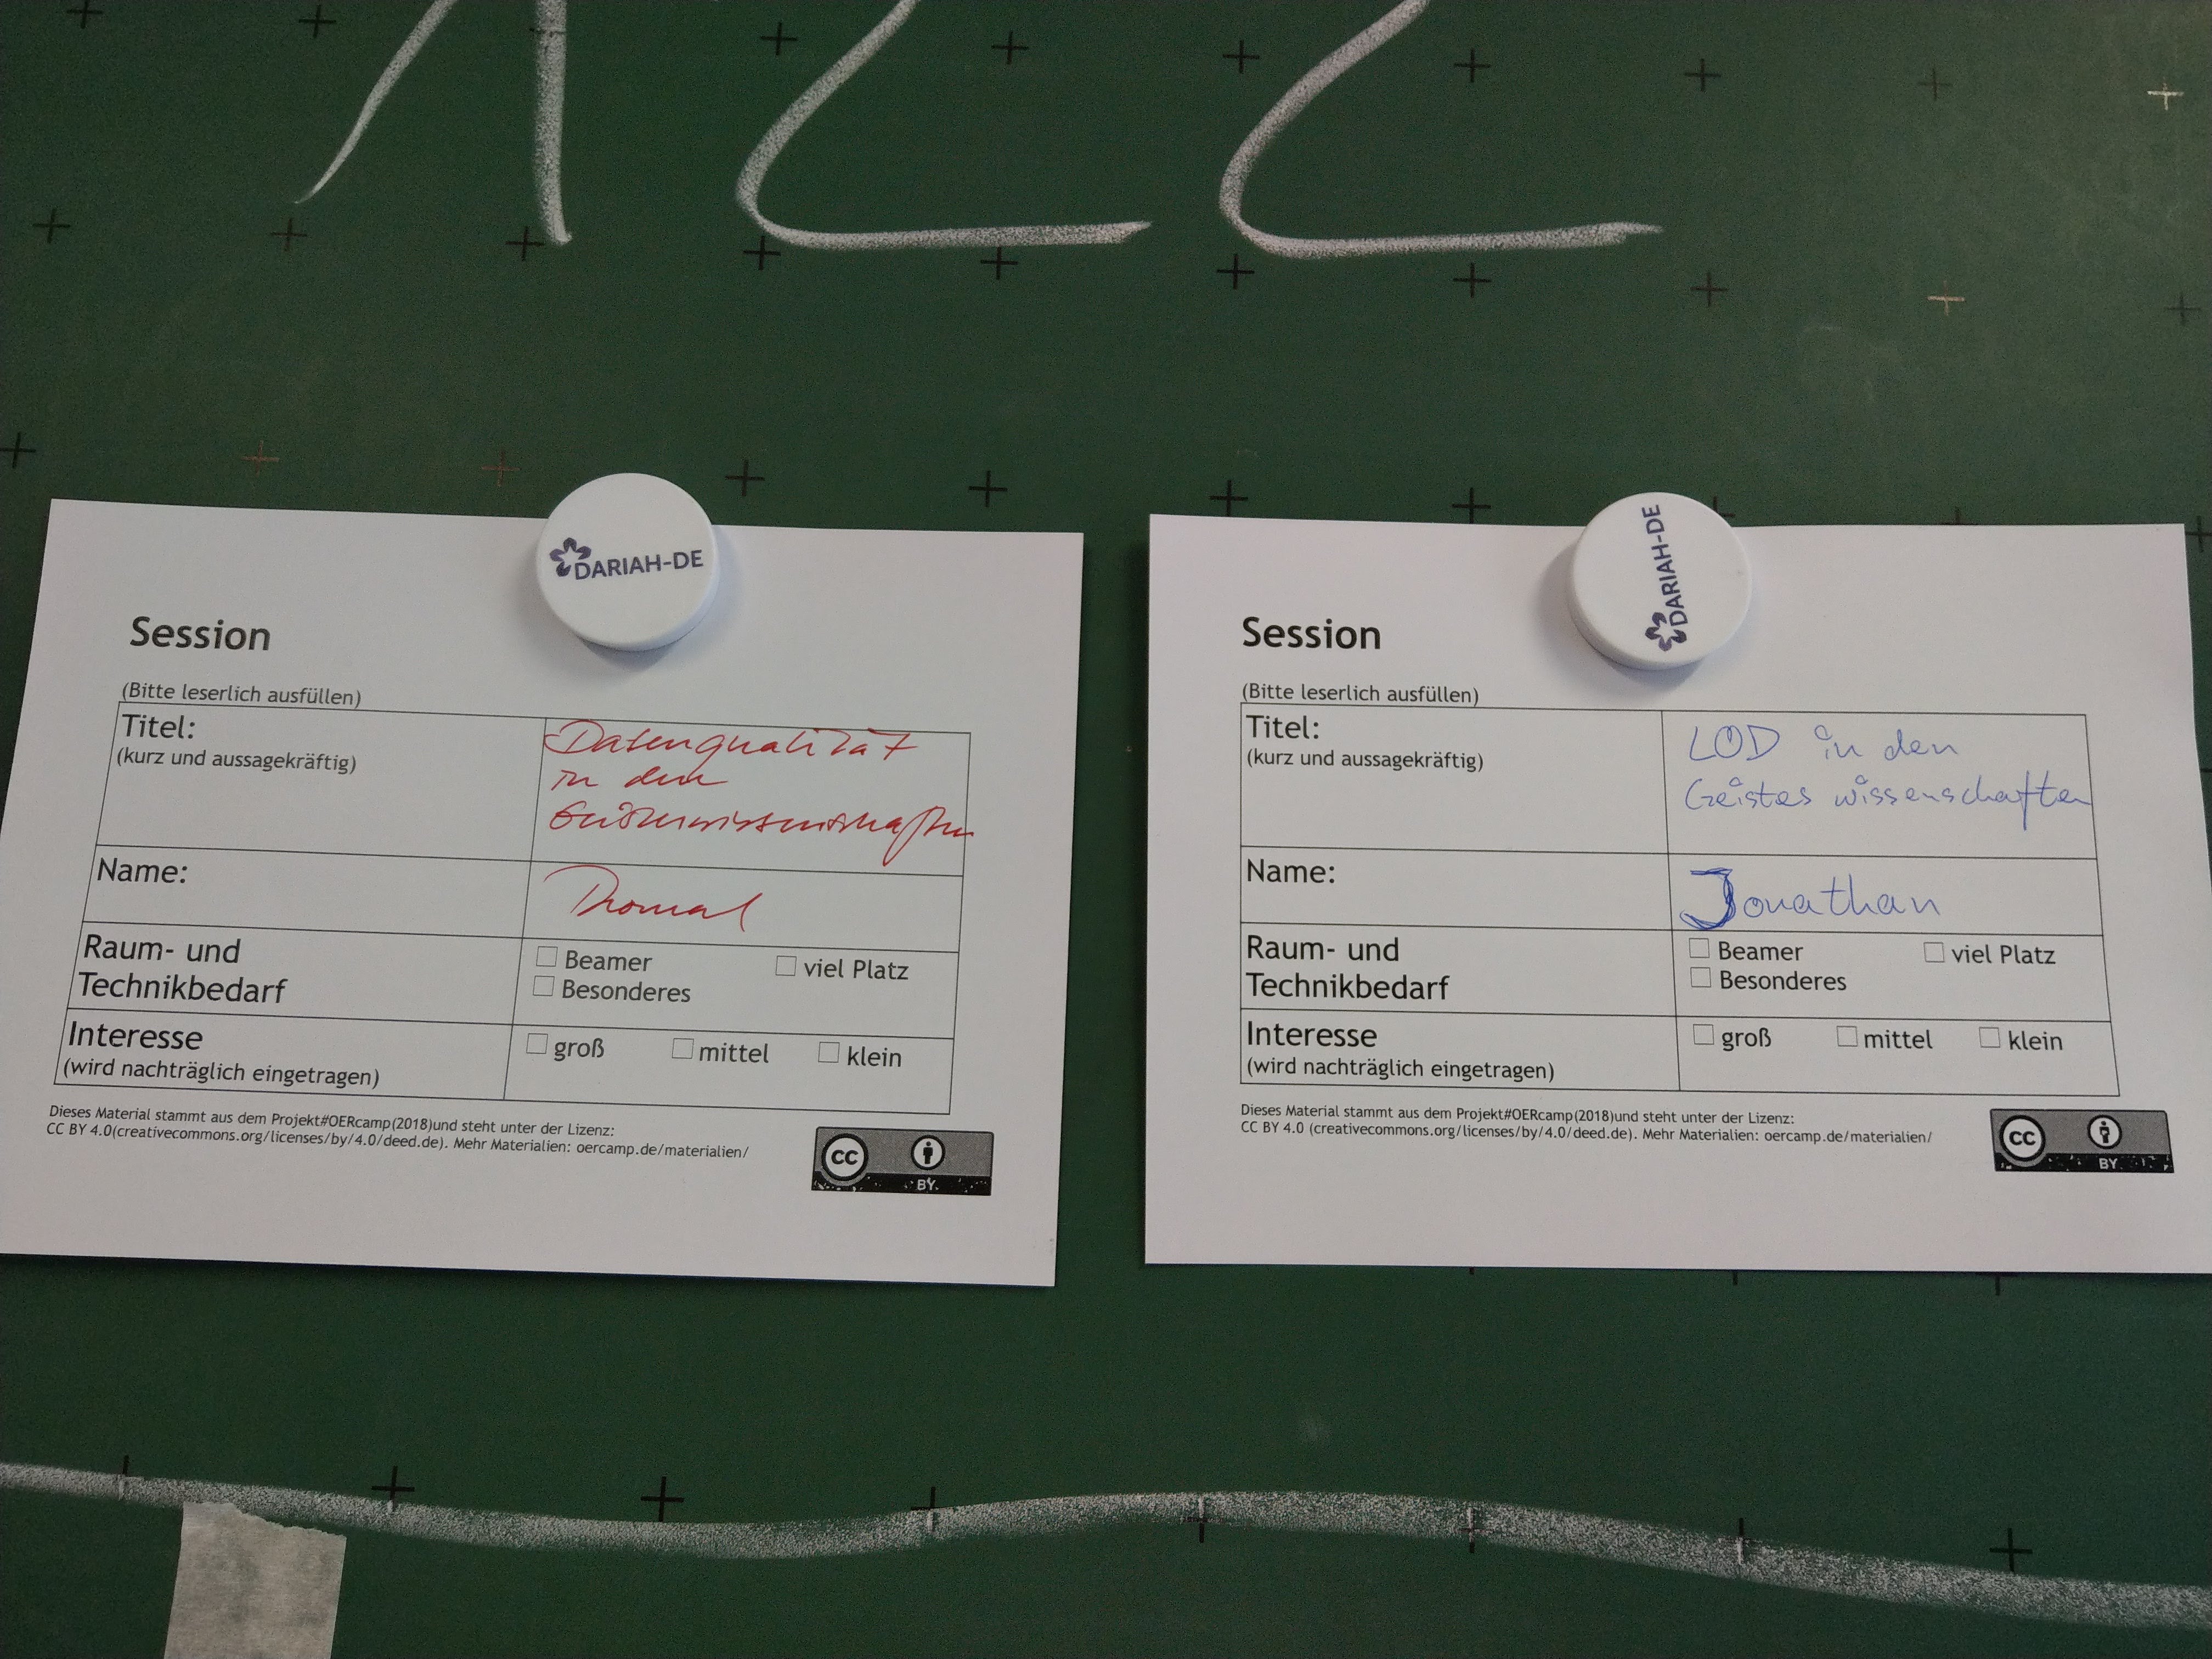 122
DARIAH-DE
Session
(Bitte leserlich ausfüllen)
Titel:
(kurz und aussagekräftig)
Datenqualität
in den
Geisteswissenschaften
Name:
Thomas
Raum- und
Technikbedarf
Beamer
viel Platz
Besonderes
Interesse
(wird nachträglich eingetragen)
groß mittel klein
Dieses Material stammt aus dem Projekt#OERcamp(2018)und steht unter der Lizenz:
CC BY 4.0(creativecommons.org/licenses/by/4.0/deed.de). Mehr Materialien: oercamp.de/materialien/
CC
BY
DARIAH-DE
Session
(Bitte leserlich ausfüllen)
Titel:
(kurz und aussagekräftig)
LOD in den
Geisteswissenschaften
Name:
Jonathan
Raum- und
Technikbedarf
Beamer
viel Platz
Besonderes
Interesse
(wird nachträglich eingetragen)
groß mittel klein
Dieses Material stammt aus dem Projekt#OERcamp(2018)und steht unter der Lizenz:
CC BY 4.0 (creativecommons.org/licenses/by/4.0/deed.de). Mehr Materialien: oercamp.de/materialien/
CC
BY